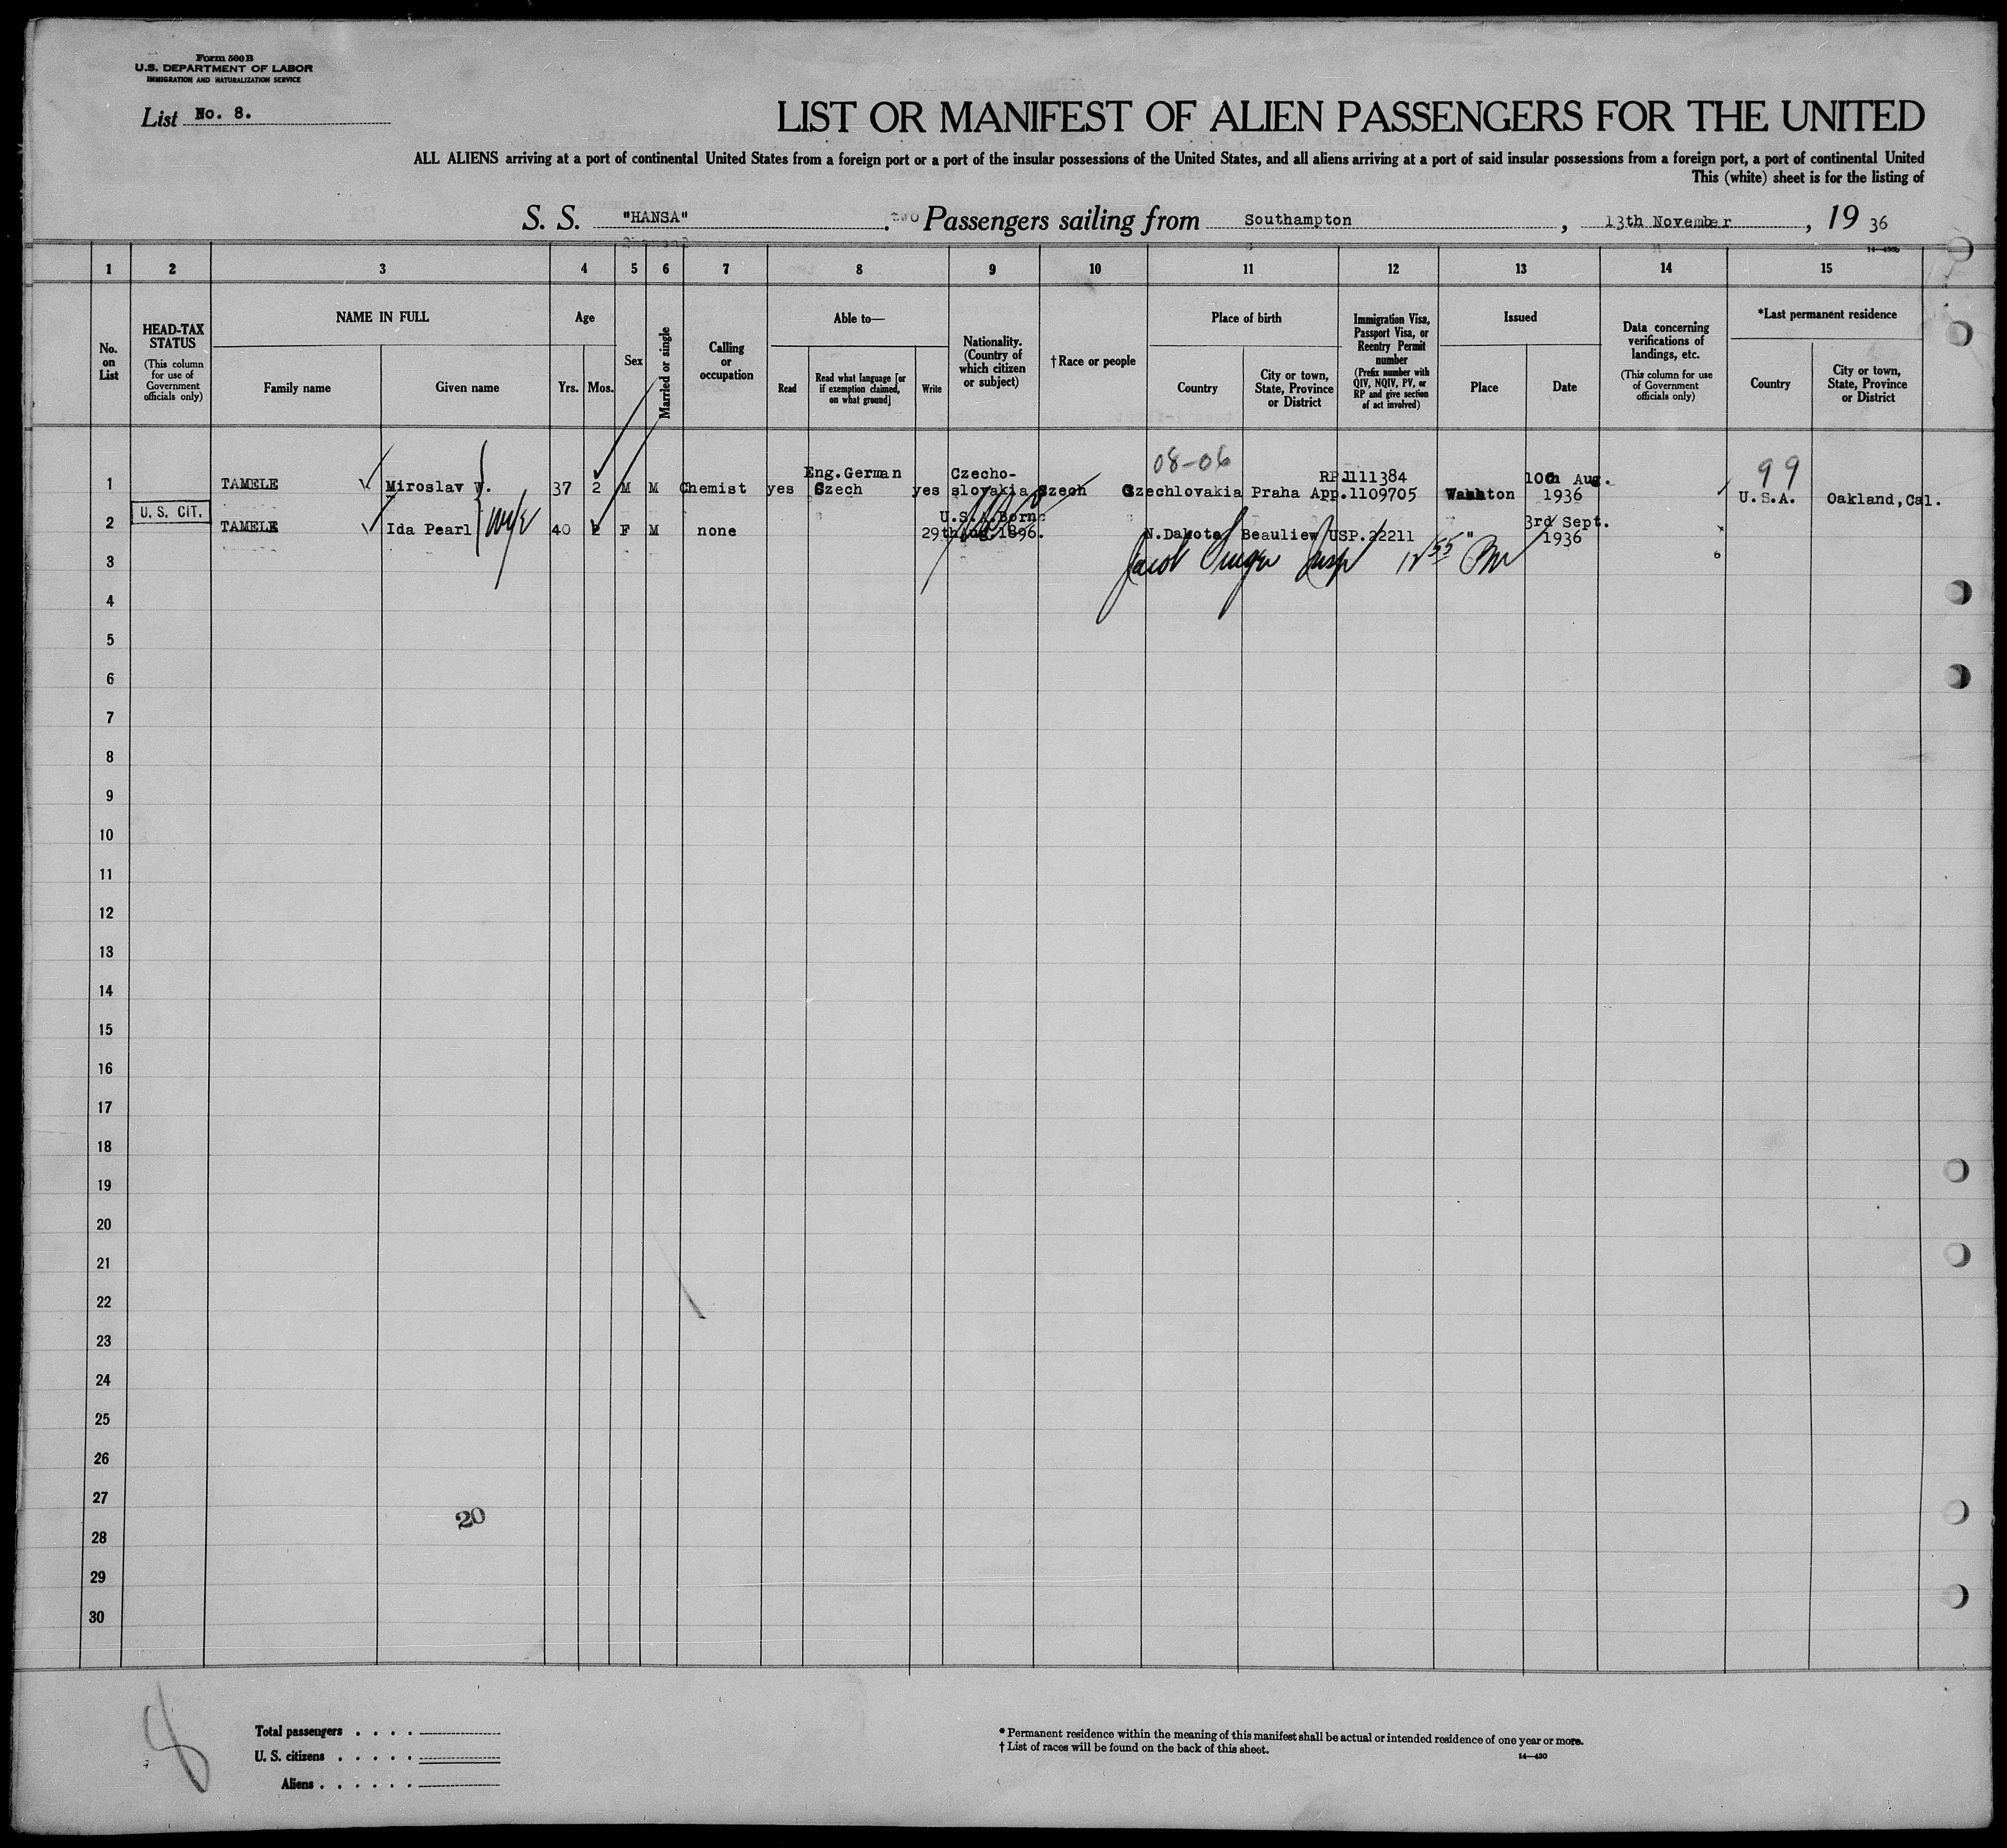 Form 500B
U.S. DEPARTMENT OF LABOR
IMMIGRATION AND NATURALIZATION SERVICE
List No. 8.
LIST OR MANIFEST OF ALIEN PASSENGERS FOR THE UNITED
ALL ALIENS arriving at a port of continental United States from a foreign port or a port of the insular possessions of the United States, and all aliens arriving at a port of said insular possessions from a foreign port, a port of continental United
This (white) sheet is for the listing of
S. S. "HANSA" Passengers sailing from Southampton, 13th November, 19 36
14—430b
1 2 3 4 5 6 7 8 9 10 11 12 13 14 15
No. on List
HEAD-TAX STATUS
(This column for use of Government officials only)
NAME IN FULL
Family name
Given name
Age
Yrs.
Mos.
Sex
Married or single
Calling or occupation
Able to—
Read
Read what language [or if exemption claimed, on what ground]
Write
Nationality. (Country of which citizen or subject)
†Race or people
Place of birth
Country
City or town, State, Province or District
Immigration Visa, Passport Visa, or Reentry Permit number
(Prefix number with QIV, NQIV, PV, or RP and give section of act involved)
Issued
Place
Date
Data concerning verifications of landings, etc.
(This column for use of Government officials only)
*Last permanent residence
Country
City or town, State, Province or District
08-06
99
1 TAMELE Miroslav 37 2 M M Chemist yes Eng.German Czech yes Czecho-slovakia Czech Czechlovakia Praha RP.1111384 App.1109705 10th Aug. 1936 U.S.A. Oakland,Cal.
U. S. CIT.
2 TAMELE Ida Pearl wife 40 2 F M none U.S.A.Born 29th Aug.1896. N.Dakota Beauliew USP.22211 " 3rd Sept. 1936
Jacob Insp 12 55 Pm
3
4
5
6
7
8
9
10
11
12
13
14
15
16
17
18
19
20
21
22
23
24
25
26
27
20
28
29
30
8
Total passengers . . . .
U. S. citizens . . . . .
Aliens . . . . . .
* Permanent residence within the meaning of this manifest shall be actual or intended residence of one year or more.
† List of races will be found on the back of this sheet.
14—430